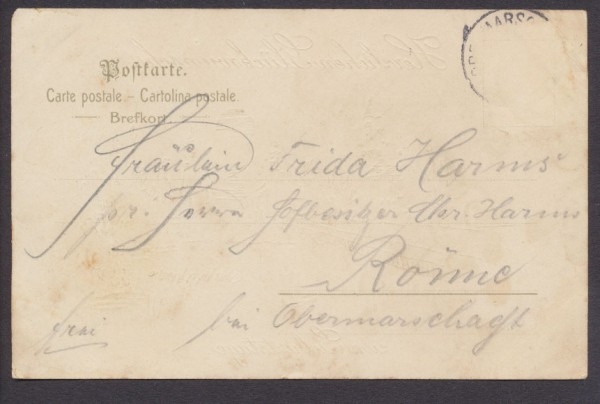 AARS
Postkarte.
Carte postale – Cartolina postale
Brefkort
Fräulein Frida Harms
pr. Herrn Hofbesitzer Chr. Harms
Rönne
frei bei Obermarschacht